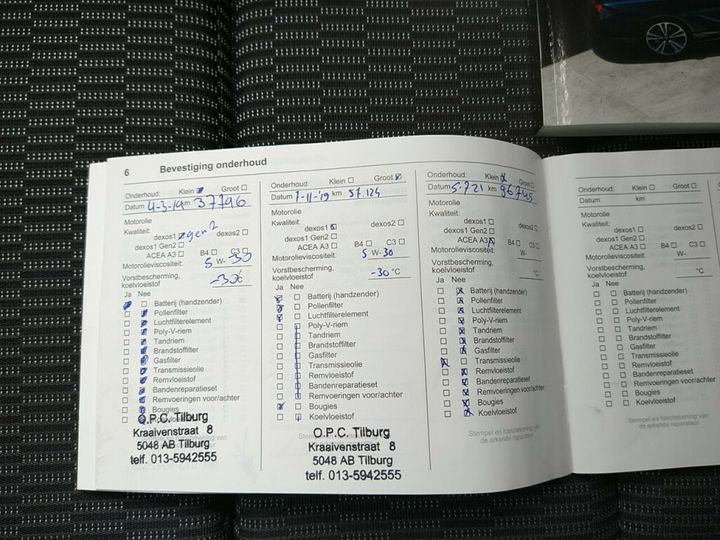 6 Bevestiging onderhoud
Onderhoud: Klein Groot
Datum 4-3-19 km 37796
Motorolie
Kwaliteit:
dexos1 gen2 dexos2
dexos1 Gen2
ACEA A3 B4 C3
Motorolieviscositeit: 5 W- 30
Vorstbescherming,
koelvloeistof -30
Ja Nee
Batterij (handzender)
Pollenfilter
Luchtfilterelement
Poly-V-riem
Tandriem
Brandstoffilter
Gasfilter
Transmissieolie
Remvloeistof
Bandenreparatieset
Remvoeringen voor/achter
Bougies
O.P.C. Tilburg
Kraaivenstraat 8
5048 AB Tilburg
telf. 013-5942555
Onderhoud: Klein Groot
Datum 7-11-'19 km 57.124
Motorolie
Kwaliteit:
dexos1 dexos2
dexos1 Gen2
ACEA A3 B4 C3
Motorolieviscositeit: 5 W-30
Vorstbescherming,
koelvloeistof -30 °C
Ja Nee
Batterij (handzender)
Pollenfilter
Luchtfilterelement
Poly-V-riem
Tandriem
Brandstoffilter
Gasfilter
Transmissieolie
Remvloeistof
Bandenreparatieset
Remvoeringen voor/achter
Bougies
Koelvloeistof
O.P.C. Tilburg
Kraaivenstraat 8
5048 AB Tilburg
telf. 013-5942555
Onderhoud: Klein Groot
Datum 5-721 km 96745
Motorolie
Kwaliteit:
dexos1 dexos2
dexos1 Gen2
ACEA A3 B4 C3
Motorolieviscositeit: W-
Vorstbescherming,
koelvloeistof °C
Ja Nee
Batterij (handzender)
Pollenfilter
Luchtfilterelement
Poly-V-riem
Tandriem
Brandstoffilter
Gasfilter
Transmissieolie
Remvloeistof
Bandenreparatieset
Remvoeringen voor/achter
Bougies
Koelvloeistof
Stempel en handtekening van
de erkende reparateur
Onderhoud: Klein Groot
Datum km
Motorolie
Kwaliteit:
dexos1 dexos2
dexos1 Gen2
ACEA A3 B4 C3
Motorolieviscositeit: W-
Vorstbescherming,
koelvloeistof °C
Ja Nee
Batterij (handzender)
Pollenfilter
Luchtfilterelement
Poly-V-riem
Tandriem
Brandstoffilter
Gasfilter
Transmissieolie
Remvloeistof
Bandenreparatieset
Remvoeringen voor/achter
Bougies
Koelvloeistof
Stempel en handtekening van
de erkende reparateur